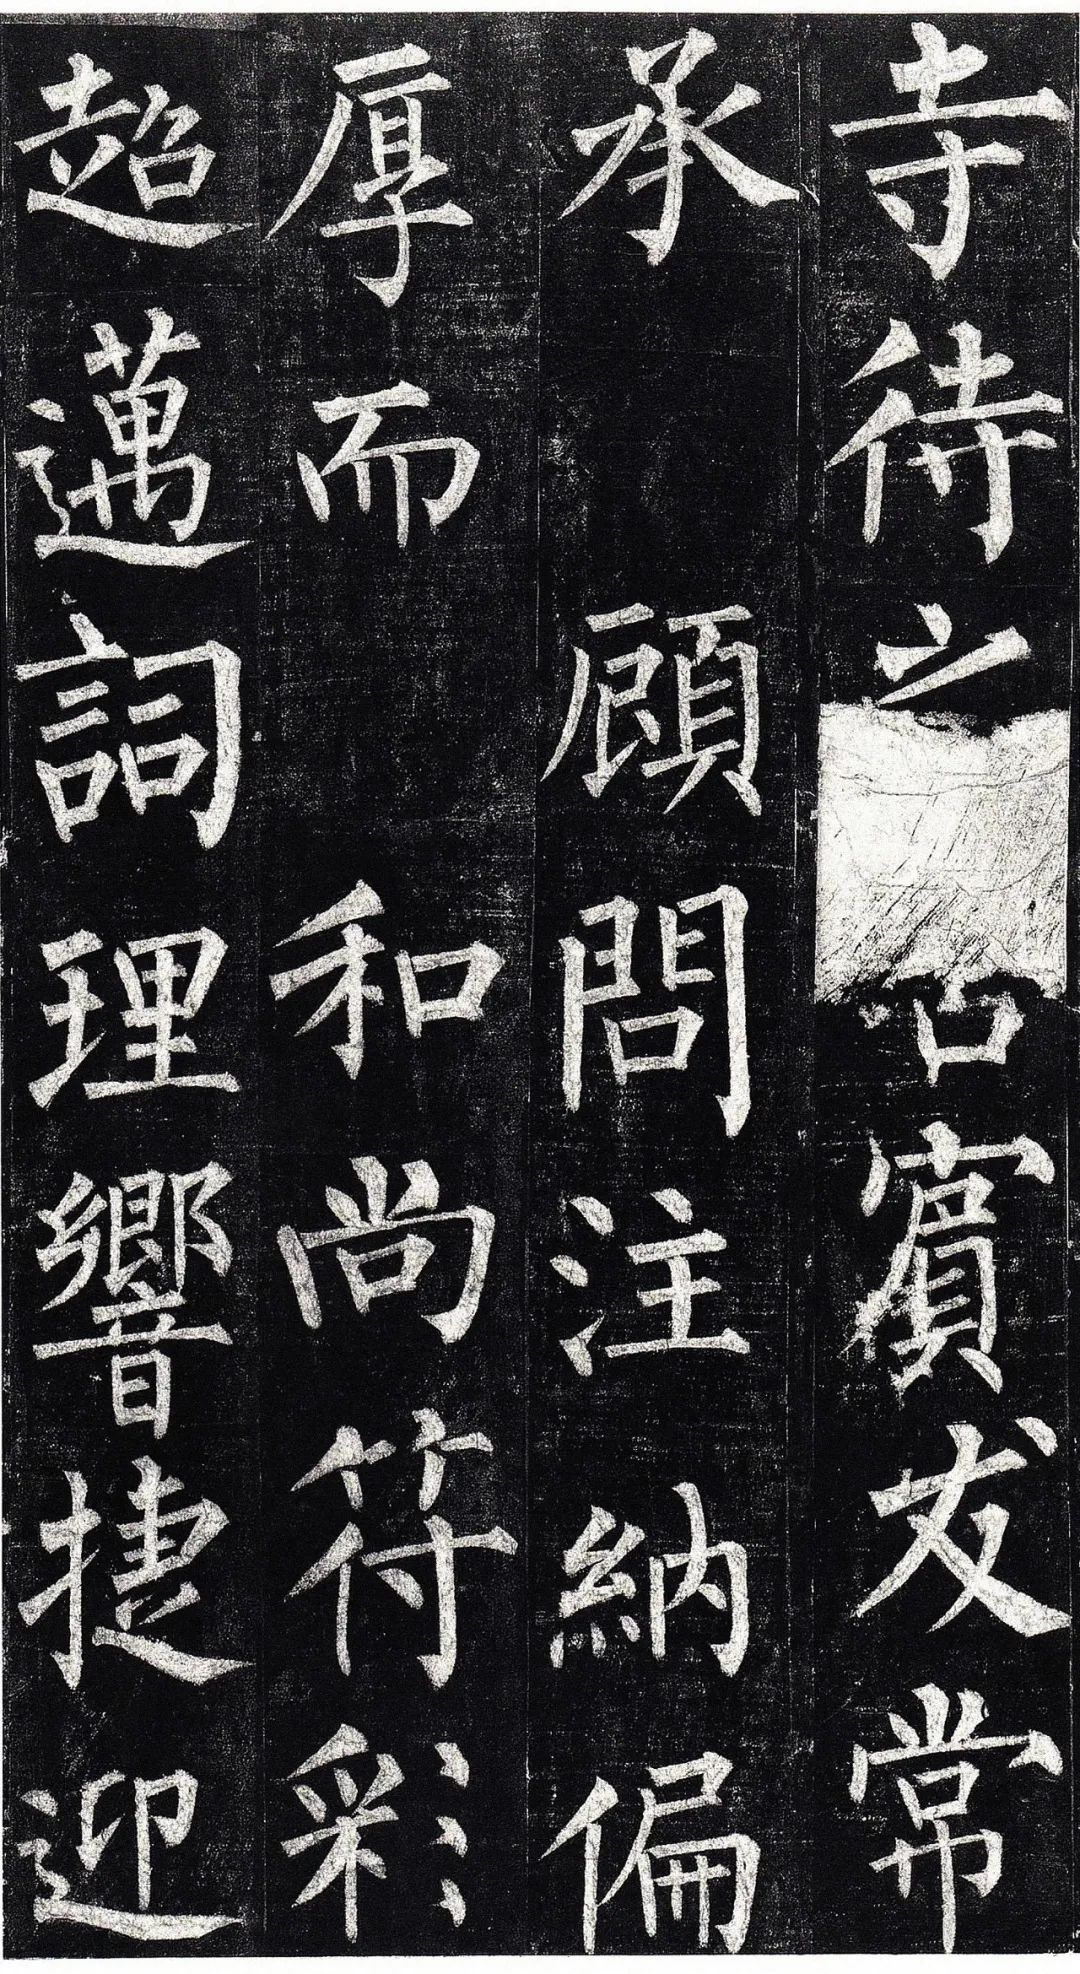 寺待之若賓友常
承顧問注納偏
厚而和尚符彩
超邁詞理響捷迎